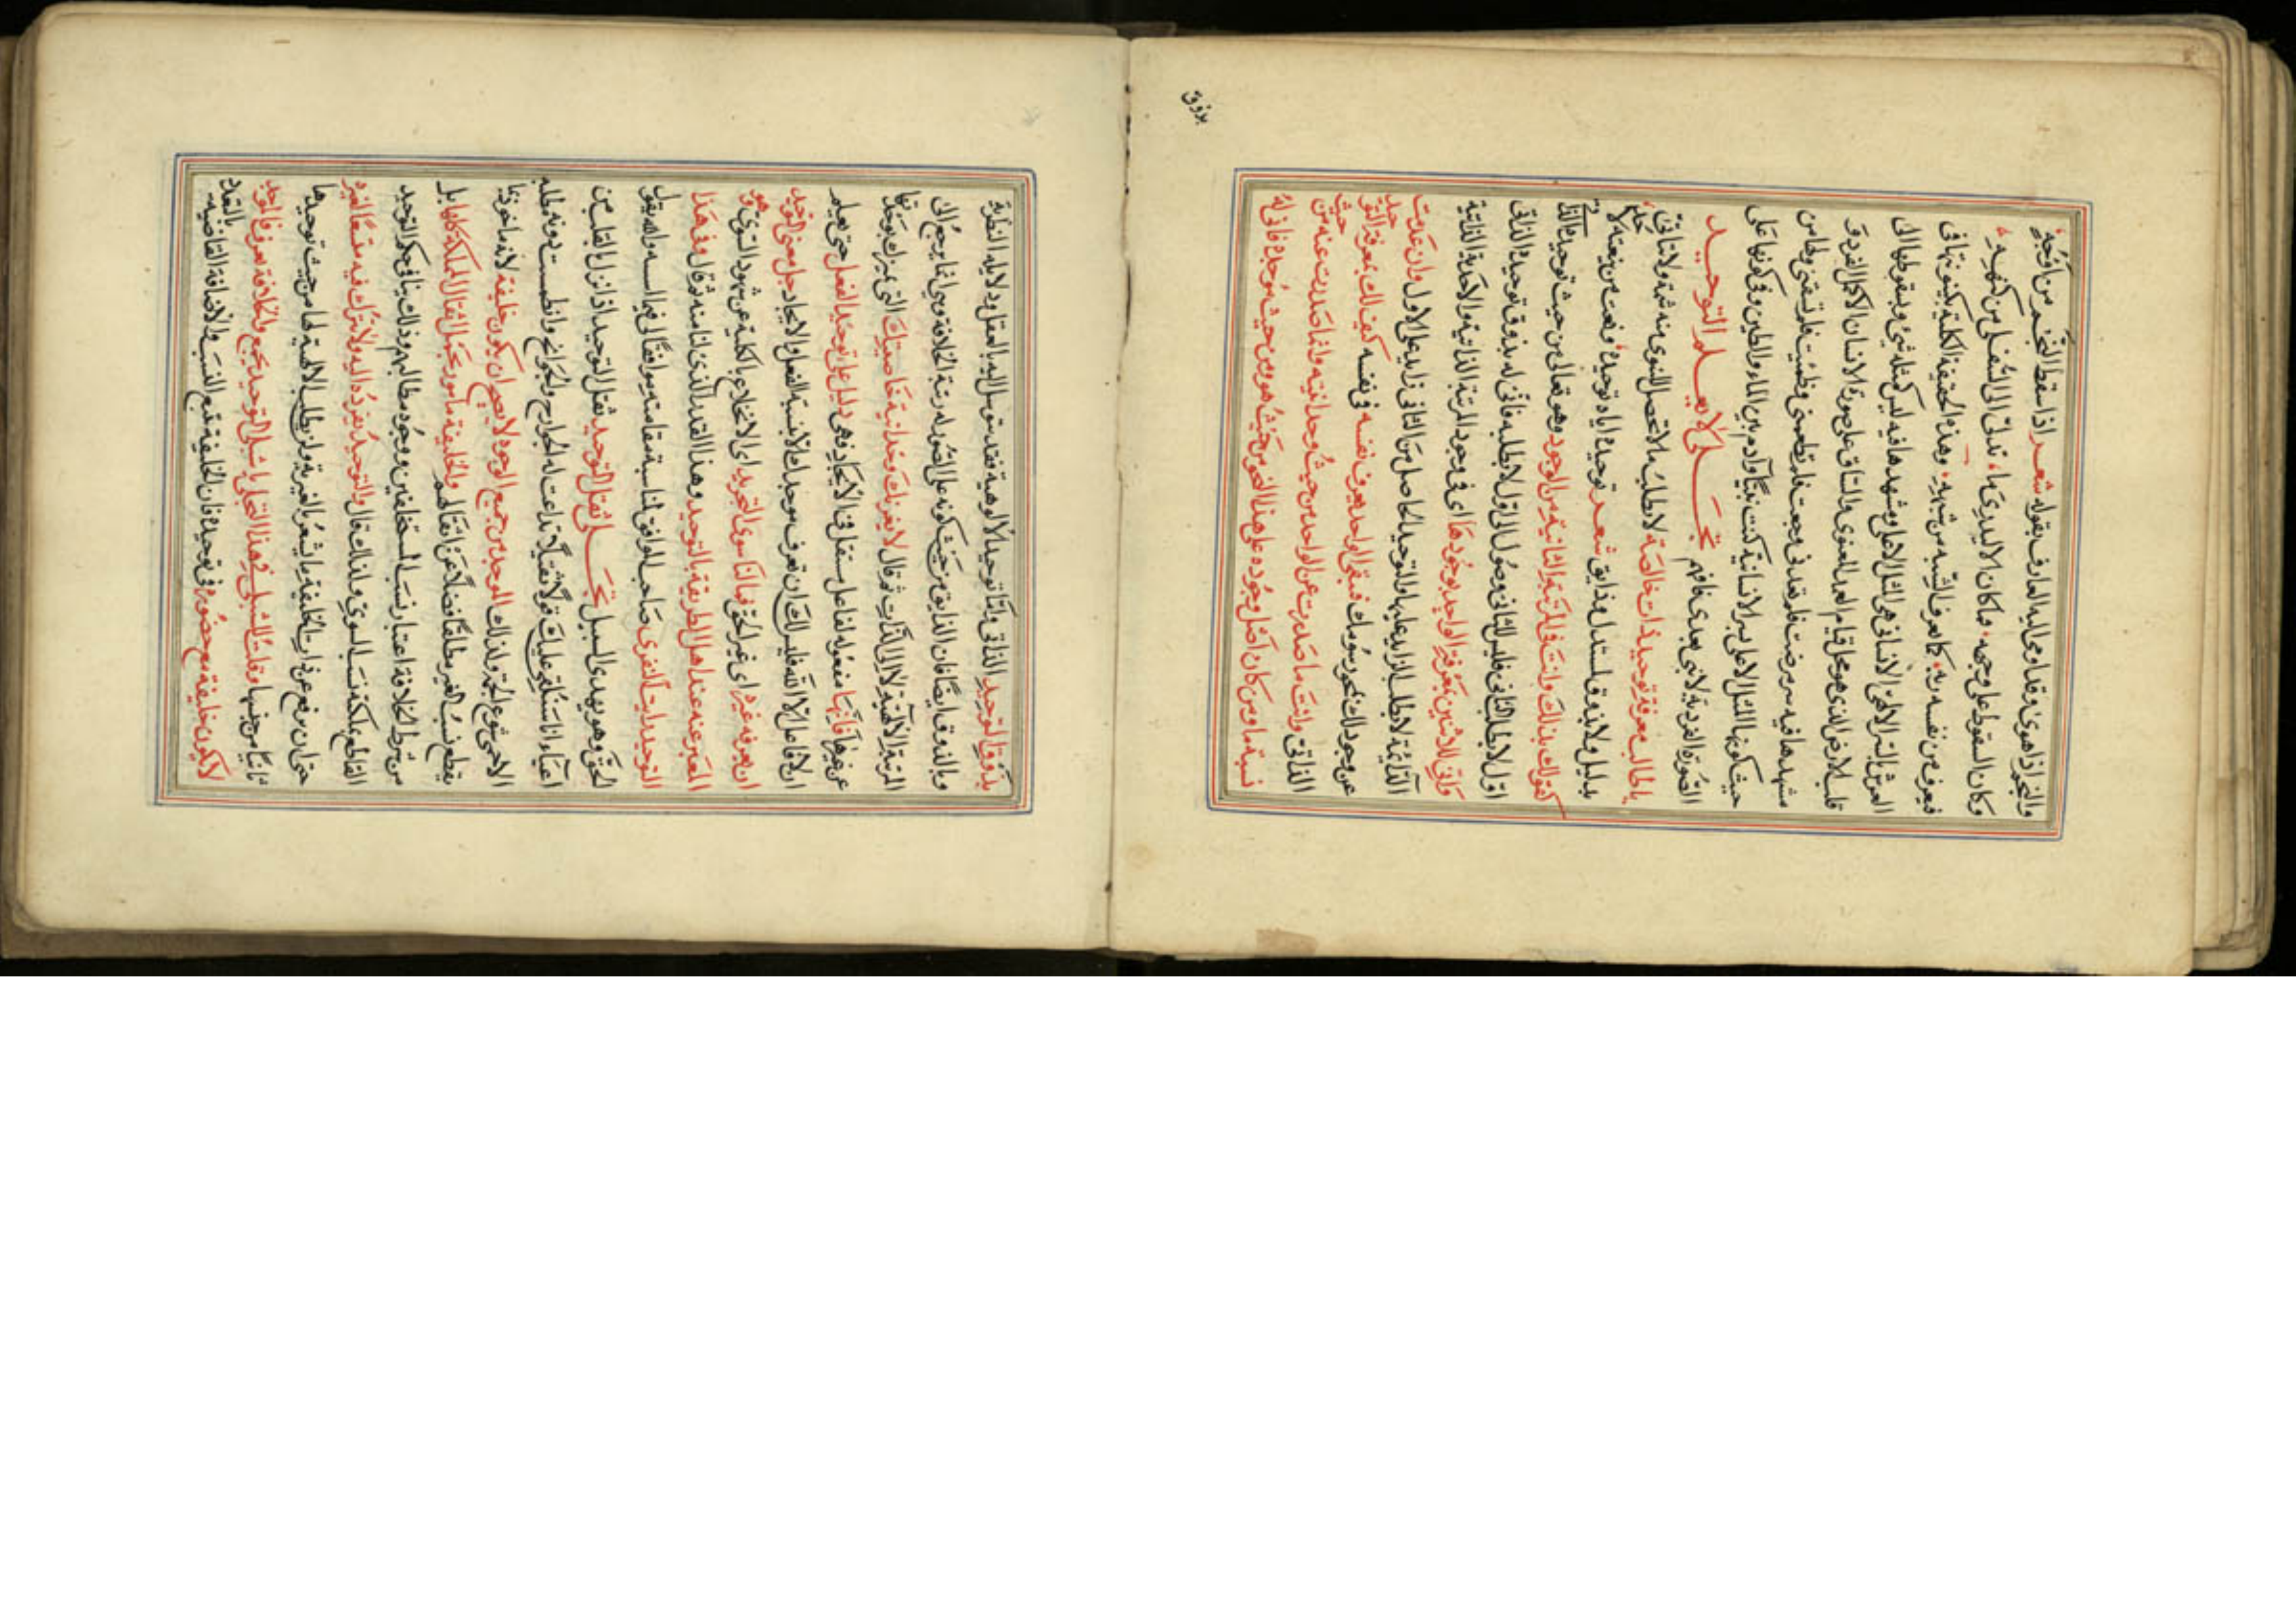 والنجم اذا هوى وقد اومى اليه العارف بقوله شعر اذا سقط النجم من اوجه
وكان السقوط على وجهه فما كان الا ليدرى ما تدلى الى السفل من كنهه
فيعرف من نفسه ربه كما يعرف الشبه من شبهه وهذه الحقيقة الكلية بكينونتها في
العرش السر الالهى الانساني هي المثل الاعلى ومشهدها فيه ليس كمثله شيء وبسقوطها الى
قلب الارض الذي هو محل قيام العمد المعنوي والساق على صورة الانسان الاكمل الفرد
مشهدها فيه مرضت فلم تعدني وجعت فلم تطعمني وظمئت فلم تسقني ولها من
حيث كونها المثل الاعلى سر الانسانية كنت نبيا وآدم بين الماء والطين وفي كونها على
الصورة الفردية لا نبي بعدي فافهم تجلى لا يعلم التوحيد
يا طالب معرفة توحيد ذات خالصة لا تطلب ما لا تحصل للسوى منه شمة ولا تأتى
بدليل ولا بذوق لمستدل وذايق شعر توحيده اياه توحيده ونعت من ينعته لاحد
كقولك بذلك وانت في المرتبة الثانية من الوجود وهو تعالى من حيث توحيده الذاتي
اول لا يطلب الثاني فليس للثاني وصول الى اول لا يطلبه فأنى له بذوق توحيده الذاتي
وأنى للاثنين بمعرفة الواحد بوجودها اى في وجود المرتبة الذاتية والاحدية الذاتية
الذاتية لا يطلب الزايد عليها والتوحيد الحاصل من الثاني زايد على الاول وان عدمت
عن وجودك بمحو رسومك فيبقى الواحد يعرف نفسه في نفسه كيف لك بمعرفة التوحيد
الذاتي وانت ما صدرت عن الواحد من حيث وحدانيته وانما صدرت عنه من حيث
نسبة ما ومن كان اصل وجوده على هذا النحو من حيث هو ومن حيث موجده فأنى له
بذوق
بذوق التوحيد الذاتي واما توحيد الالوهية فقد يتوصل اليه بالعقل ودلايله النظرية
وبالذوق ايضا فان الذايق من حيث كونه على الصورة له رتبة الخلافة وهي انما يرجع الى
المرتبة الالهية لا الى الذات ثم قال لا يغرنك وحدانية خاصيتك التي تميزك بوحدتها
عن غيرها فانها مفعولة لفاعل مستقل في الايجاد فهي دليل على توحيد الفعل حتى يعلم
ان لا فاعل الا الله فليس لك ان تعرف موجدك الا بنسبة الفعل والايجاد جل معنى التوحيد
ان يعرفه غيره اى غير الحق فما لنا سوى التجريد اى الانخلاع بالكلية عن شهود السوى وهو
المعبر عنه عند اهل الطريقة بالتوحيد وهذا القدر الذي لنا منه ثم قال وفي هذا
التوحيد رايت النفري صاحب المواقف لمناسبة مقامته موافقا لي فيها السه والله يقول
الحق وهو يهدي السبيل تجلى ثقل التوحيد ثقل التوحيد اذا نزل بالقلب من
اعبآء انا سنلقي عليك قولا ثقيلا تداعت له الجوارح والجوانح وانطمست دونه مطالعه
الاحمى شيوع الحق ولذلك الموحد من جميع الوجوه لا يصح ان يكون خليفة لانه ماخوذ بما
يقطع نسب الغير مطلقا فضلا عن اثقالهم والخليفة مامور بحمل اثقال المملكة كلها بل
من شرط الخلافة اعتبار نسب المستخلفين ووجود مطالبهم وذلك ينافي حكم التوحيد
القاطع بملكته نسب السوى ولذلك قال والتوحيد يفرده اليه ولا يترك فيه متسعا لغيره
حتى ان يرفع عن ذات الخليفة ما يشعر بالغيرية ولم يطلب الالهية لها من حيث توحيدها
ثانيا من جنسها وقلت للشبلي في هذا التجلي يا شبلي التوحيد يجمع والخلافة تفرق فالموحد
لا يكون خليفة مع حضوره في توحيده فان الخليفة تتبع النسب والاضافة القاضية بالتعدد